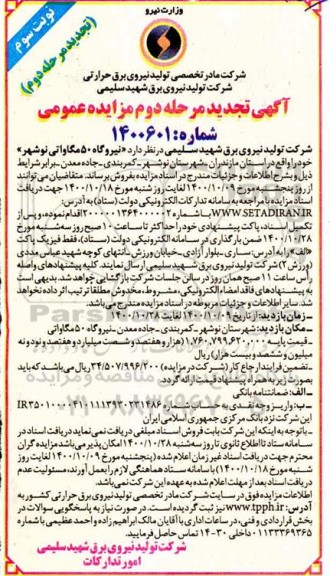 وزارت نیرو
نوبت سوم
(تجدید مرحله دوم)
شرکت مادر تخصصی تولید نیروی برق حرارتی
شرکت تولید نیروی برق شهید سلیمی
آگهی تجدید مرحله دوم مزایده عمومی
شماره: ۱۴۰۰۶۰۱
شرکت تولید نیروی برق شهید سلیمی در نظر دارد «نیروگاه ۵۰ مگاواتی نوشهر»
خود را واقع در استان مازندران - شهرستان نوشهر - کمربندی - جاده معدن - برابر شرایط
ذیل و بشرح اطلاعات و جزئیات مندرج در اسناد مزایده بفروش برساند. متقاضیان می توانند
از روز پنجشنبه مورخ ۱۴۰۰/۱۰/۰۹ لغایت روز شنبه مورخ ۱۴۰۰/۱۰/۱۸ جهت دریافت
اسناد مزایده با مراجعه به سامانه تدارکات الکترونیکی دولت (ستاد) به آدرس:
WWW.SETADIRAN.IR با شماره ۲۰۰۰۰۰۱۳۶۴۰۰۰۰۰۲ اقدام نموده و پس از
تکمیل اسناد، پاکت پیشنهادی خود را حداکثر تا ساعت ۱۰ صبح روز سه شنبه مورخ
۱۴۰۰/۱۰/۲۸ ضمن بارگذاری در سامانه الکترونیکی دولت (ستاد)، فقط فیزیک پاکت
«الف» را به آدرس: ساری - بلوار آزادی - خیابان ورزش - انتهای کوچه شهید عباس مددی
(ورزش ۲) شرکت تولید نیروی برق شهید سلیمی ارسال نمایند. کلیه پیشنهادهای واصله
رأس ساعت ۱۱ صبح همان روز در سالن جلسات شرکت بازگشایی خواهد شد. بدیهی است
به پیشنهادهای فاقد امضاء الکترونیکی، مشروط، مخدوش مطلقاً ترتیب اثر داده نخواهد
شد. سایر اطلاعات و جزئیات مربوطه در اسناد مزایده مندرج می باشد.
- زمان بازدید: از تاریخ ۱۴۰۰/۱۰/۰۹ لغایت ۱۴۰۰/۱۰/۲۸
- مکان بازدید: شهرستان نوشهر - کمربندی - جاده معدن - نیروگاه ۵۰ مگاواتی
- قیمت پایه ۱,۷۶۰,۷۹۹,۶۲۰,۰۰۰ (هزار و هفتصد و شصت میلیارد و هفتصد و نود و نه
میلیون و ششصد و بیست هزار) ریال
- تضمین فرایند ارجاع کار (شرکت در مزایده) ۳۴/۵۰۷/۹۹۶/۲۰۰ ریال می باشد که باید
بصورت زیر به همراه پیشنهاد قیمت ارائه گردد.
- الف: ضمانتنامه بانکی
- ب: واریز وجه نقدی به حساب شماره IR۳۵۰۱۰۰۰۰۴۱۰۱۱۱۳۹۳۰۲۳۱۴۸۶
این شرکت نزد بانک مرکزی جمهوری اسلامی ایران
- با توجه به اینکه این شرکت بابت فروش اسناد مبلغی دریافت نمی نماید دریافت اسناد در
سامانه ستاد تا اطلاع ثانوی تا روز سه شنبه ۱۴۰۰/۱۰/۲۸ امکان پذیر می باشد مزایده گران
محترم جهت دریافت اسناد غیر زمان اعلام شده (پنجشنبه مورخ ۱۴۰۰/۱۰/۰۹ لغایت روز
شنبه مورخ ۱۴۰۰/۱۰/۱۸) با سامانه ستاد هماهنگی لازم را بعمل آورند، مسئولیت عدم
دریافت اسناد بعد از مهلت اعلام شده به عهده این شرکت نمی باشد.
اطلاعات مزایده فوق در سایت شرکت مادر تخصصی تولید نیروی برق حرارتی کشور به
آدرس: www.tpph.ir نیز ثبت گردیده است. در صورت نیاز به پاسخگویی سوالات در
بخش قراردادی و فنی، در ساعات اداری با آقایان مالک ابراهیم زاده و احمد عظیمی با شماره
۰۱۱۳۳۳۶۹۳۶۵ داخلی ۳۰-۱۴ تماس حاصل فرمایید.
شرکت تولید نیروی برق شهید سلیمی
امور تدارکات